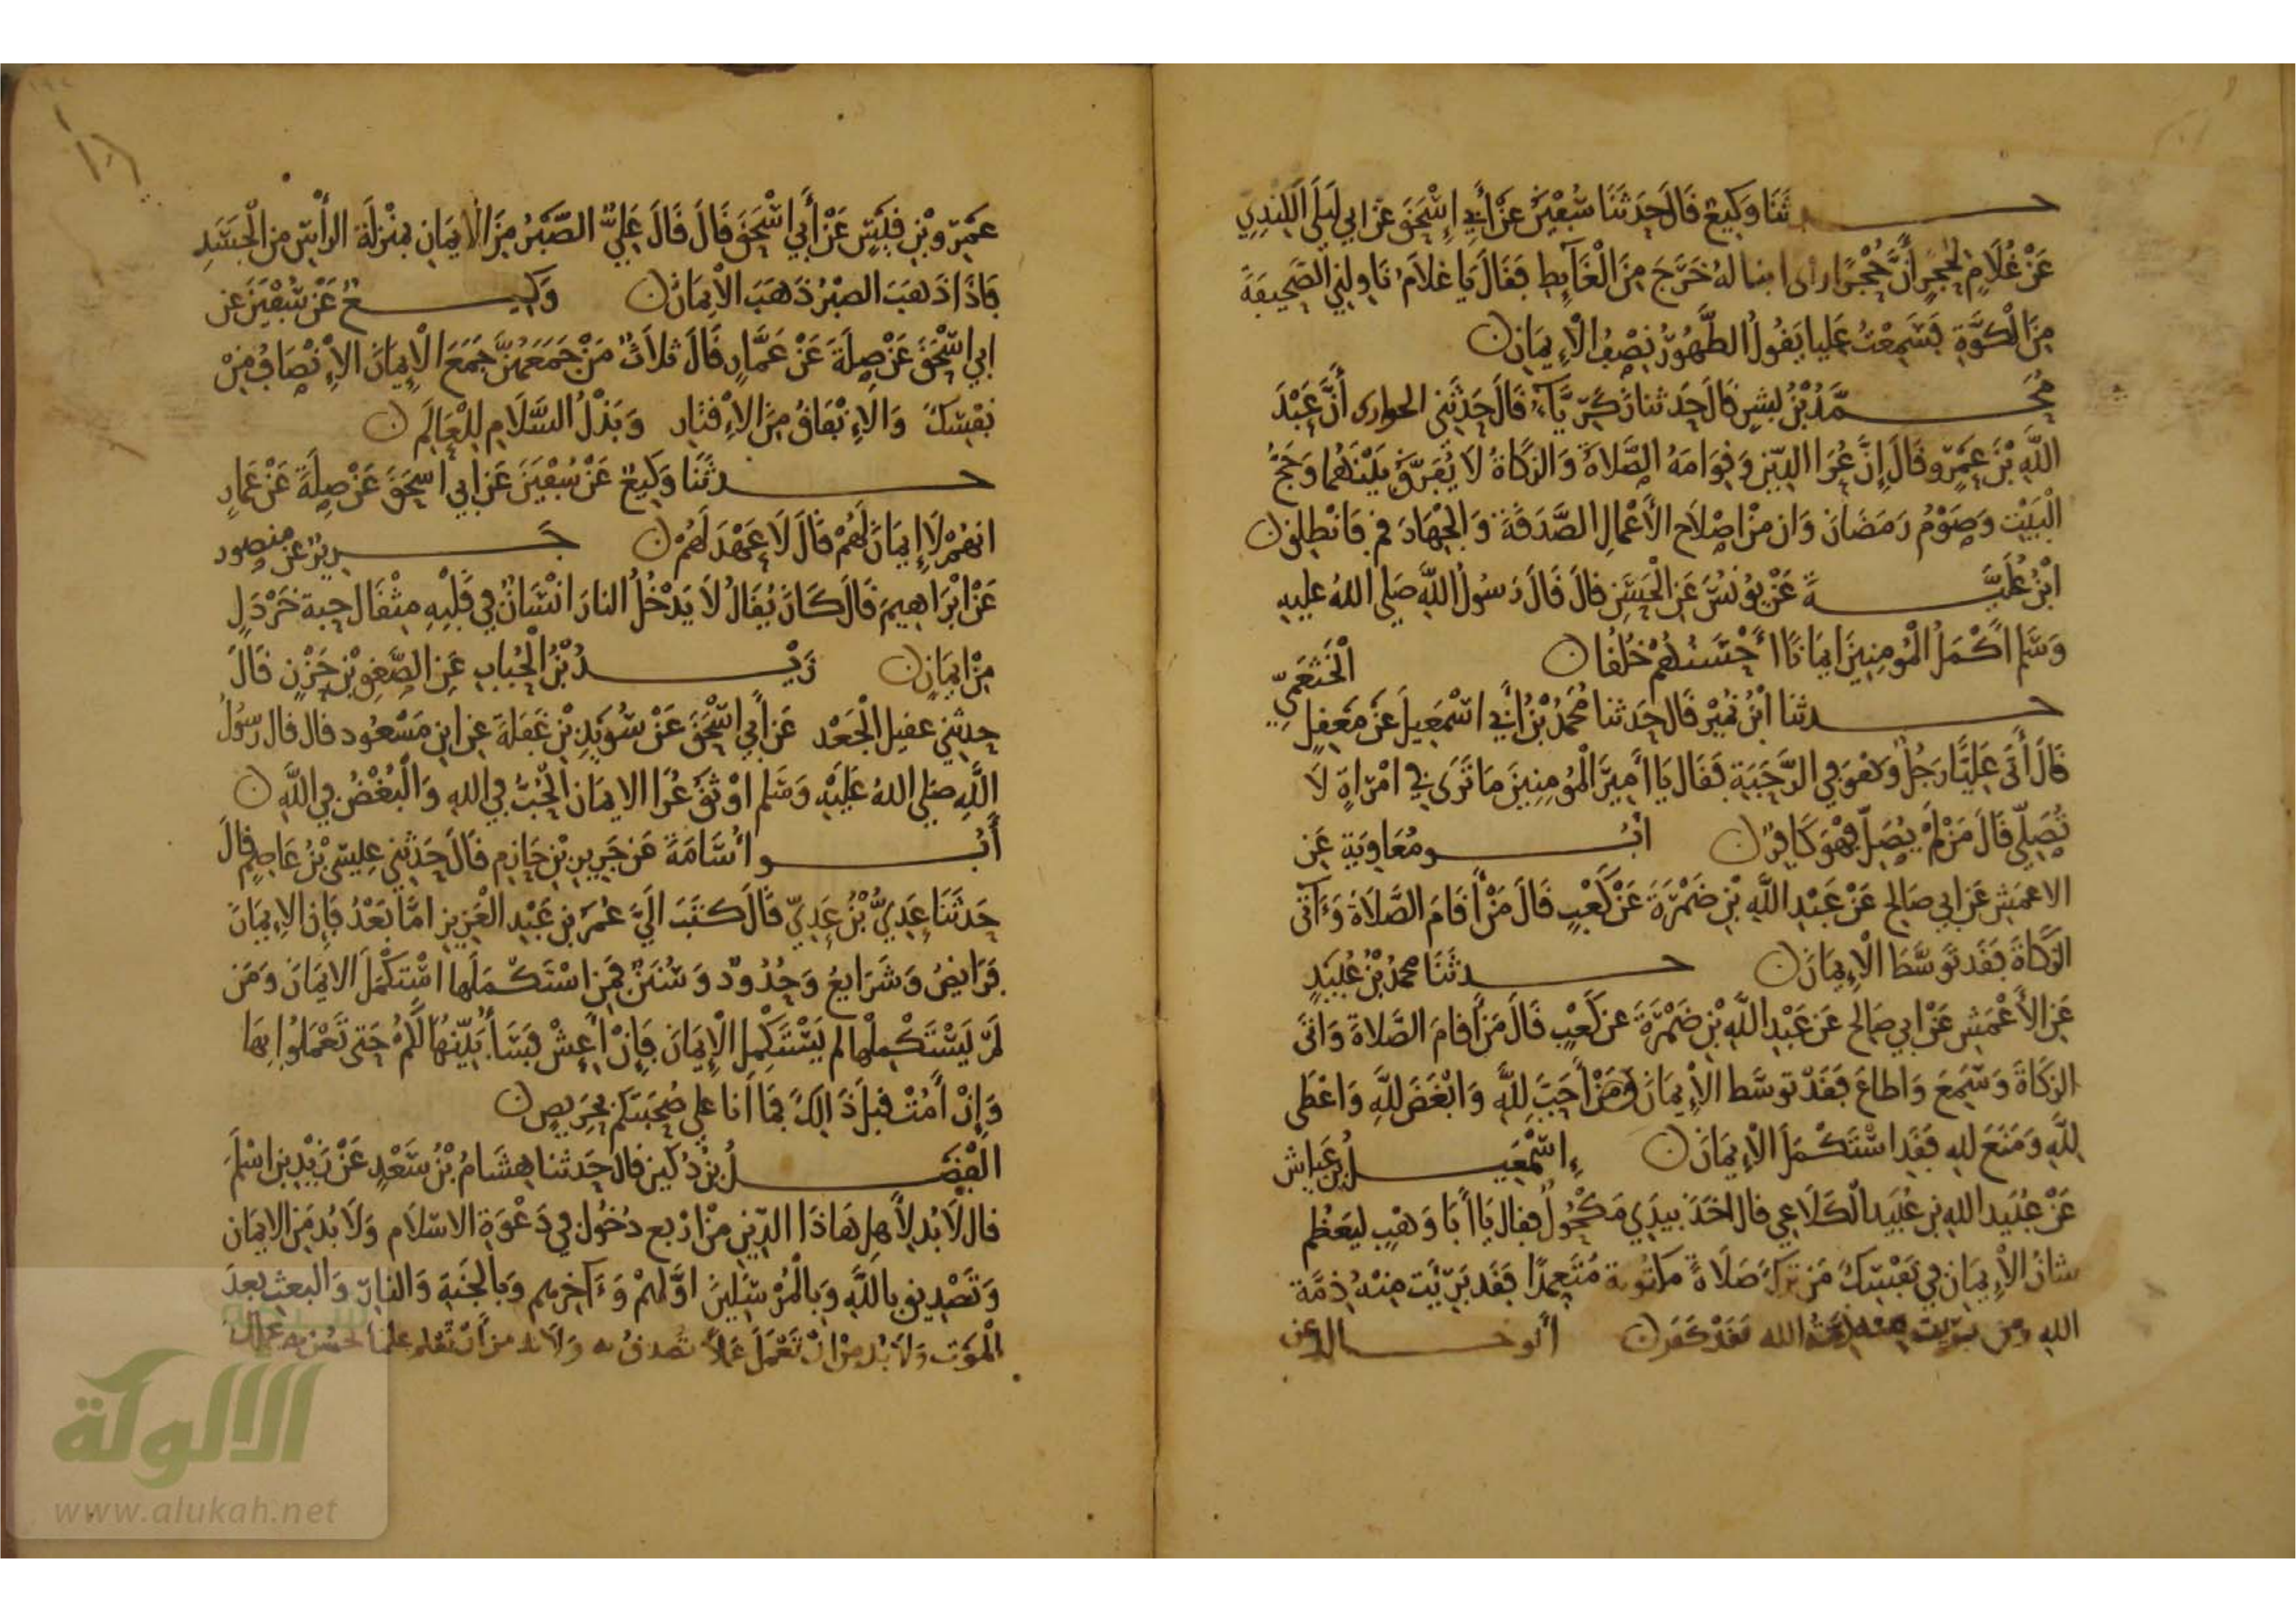 حدثنا وكيع قال حدثنا سفين عن أبي إسحق عن ابي ليلى الكندي
عن غلام لحجر أن حجرا راى ابنا له خرج من الغائط فقال يا غلام ناولني الصحيفة
من الكوة فسمعت عليا يقول الطهور نصف الإيمان
محمد بن بشر قال حدثنا زكرياء قال حدثني الحوارى أن عبد
الله بن عمرو قال إن عرا الدين وقوامه الصلاة والزكاة لا يفرق بينهما وحج
البيت وصوم رمضان وان من اصلاح الأعمال الصدقة والجهاد قم فانطلق
ابن علية عن يونس عن الحسن قال قال رسول الله صلى الله عليه
وسلم اكمل المومنين ايمانا أحسنهم خلقا
الخثعمي
حدثنا ابن نمير قال حدثنا محمد بن أبي اسمعيل عن معقل
قال أتى عليا رجل وهو في الرحبة فقال يا أمير المومنين ما ترى في امراة لا
تصلي قال من لم يصل فهو كافر ابو معاوية عن
الاعمش عن ابي صالح عن عبد الله بن ضمرة عن كعب قال من أقام الصلاة وءاتى
الزكاة فقد توسط الإيمان حدثنا محمد بن عبيد
عن الأعمش عن ابي صالح عن عبد الله بن ضمرة عن كعب قال من أقام الصلاة واتى
الزكاة وسمع واطاع فقد توسط الإيمان ومن أحب لله وابغض لله واعطى
لله ومنع لله فقد استكمل الإيمان إسمعيل بن عياش
عن عبيد الله بن عبيد الكلاعي قال اخذ بيدي مكحول فقال يا أبا وهب ليعظم
شان الإيمان في نفسك من ترك صلاة مكتوبة متعمدا فقد برئت منه ذمة
الله ومن برئت منه ذمة الله فقد كفر أبو خالد عن
عمرو بن قيس عن أبي اسحق قال قال علي الصبر من الايمان بمنزلة الرأس من الجسد
فاذا ذهب الصبر ذهب الايمان وكيع عن سفين عن
ابي اسحق عن صلة عن عمار قال ثلاث من جمعهن جمع الإيمان الإنصاف من
نفسك والإنفاق من الإقتار وبذل السلام للعالم
حدثنا وكيع عن سفين عن ابي اسحق عن صلة عن عمار
انهم لا إيمان لهم قال لا عهد لهم جرير عن منصور
عن ابراهيم قال كان يقال لا يدخل النار انسان في قلبه مثقال حبة خردل
من ايمان زيد بن الحباب عن الصعق بن حزن قال
حدثني عقيل الجعد عن أبي اسحق عن سويد بن غفلة عن ابن مسعود قال قال رسول
الله صلى الله عليه وسلم اوثق عرا الايمان الحب في الله والبغض في الله
أبو أسامة عن جرير بن حازم قال حدثني عيسى بن عاصم قال
حدثنا عدي بن عدي قال كتب الي عمر بن عبد العزيز اما بعد فان الإيمان
فرايض وشرايع وحدود وسنن فمن استكملها استكمل الايمان ومن
لم يستكملها لم يستكمل الإيمان فإن أعش فسأبينها لكم حتى تعملوا بها
وإن أمت قبل ذالك فما أنا على صحبتكم بحريص
الفضل بن دكين قال حدثنا هشام بن سعد عن زيد بن اسلم
قال لا بد لأهل هاذا الدين من اربع دخول في دعوة الاسلام ولا بد من الايمان
وتصديق بالله وبالمرسلين اولهم وءاخرهم وبالجنة والنار والبعث بعد
الموت ولا بد من ان تعمل عملا تصدق به ولا بد من أن تعلم علما تحسن به عملك
الألوكة
www.alukah.net